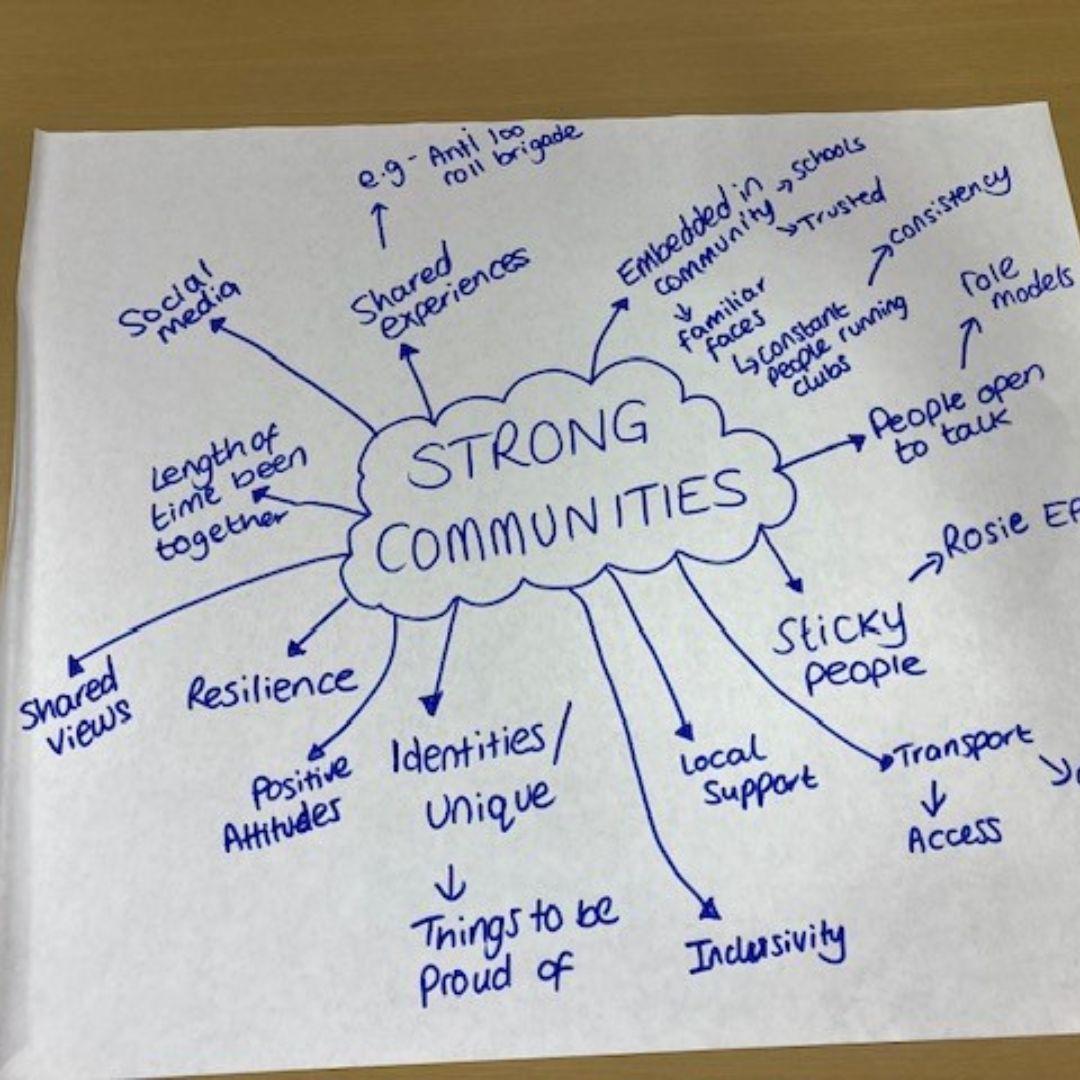 e.g - Anti loo
roll brigade
↑
Shared
experiences
Social
media
Embedded in
community
→ schools
↘ Trusted
↓
familiar
faces
↳ constant
people running
clubs
↗ consistency
role
models
↑
People open
to talk
STRONG
COMMUNITIES
Length of
time been
together
→ Rosie
Sticky
people
Shared
views
Resilience
Positive
Attitudes
Identities/
Unique
↓
Things to be
Proud of
Local
Support
Transport
↓
Access
Inclusivity